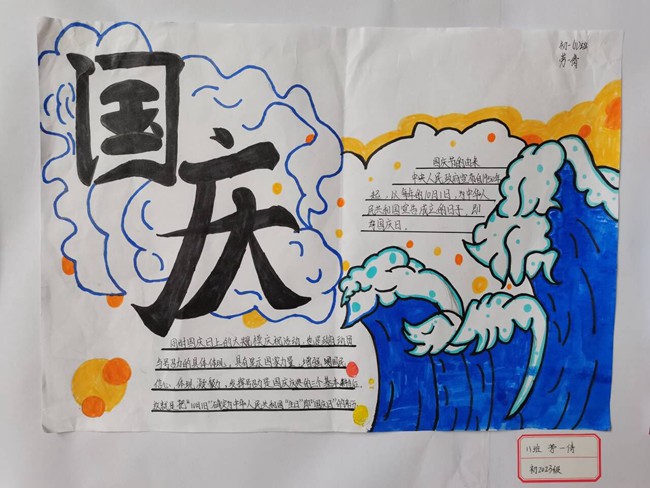 国庆
初一
国庆节的由来
中央人民政府宣布自1950年
起,以每年的10月1日,为中华人
民共和国宣告成立的日子,即
为国庆日。
同时国庆日上的大规模庆祝活动,也是政府动员
与号召力的具体体现。具有显示国家力量、增强国民
信心,体现凝聚力,发挥号召力是国庆庆典的三个基本特征。
把"10月1日"确定为中华人民共和国"生日"即"国庆日"
11班 劳一倩
初2023级